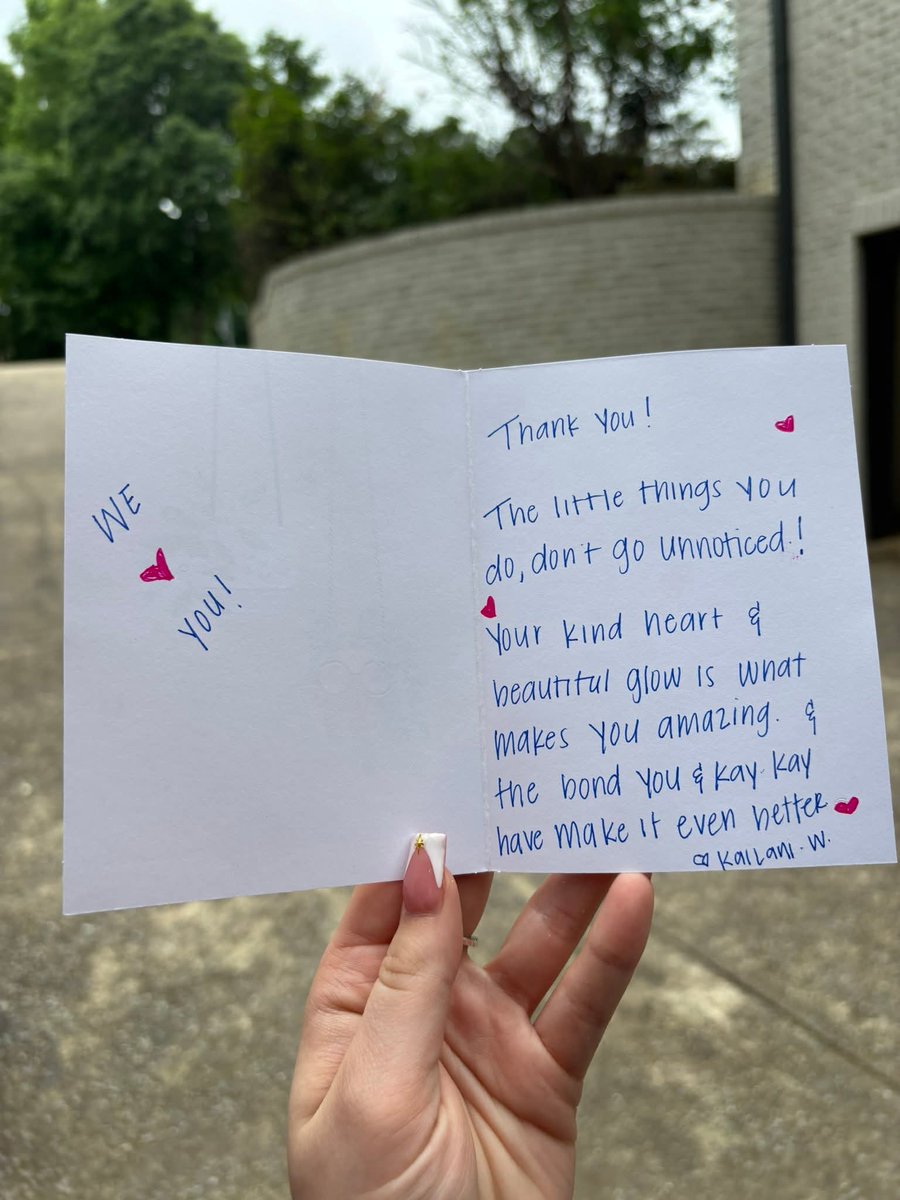 WE
YOU!
Thank you!
The little things you
do, don't go unnoticed!
Your kind heart &
beautiful glow is what
makes you amazing. &
the bond you & Kay Kay
have make it even better
Kailani. W.